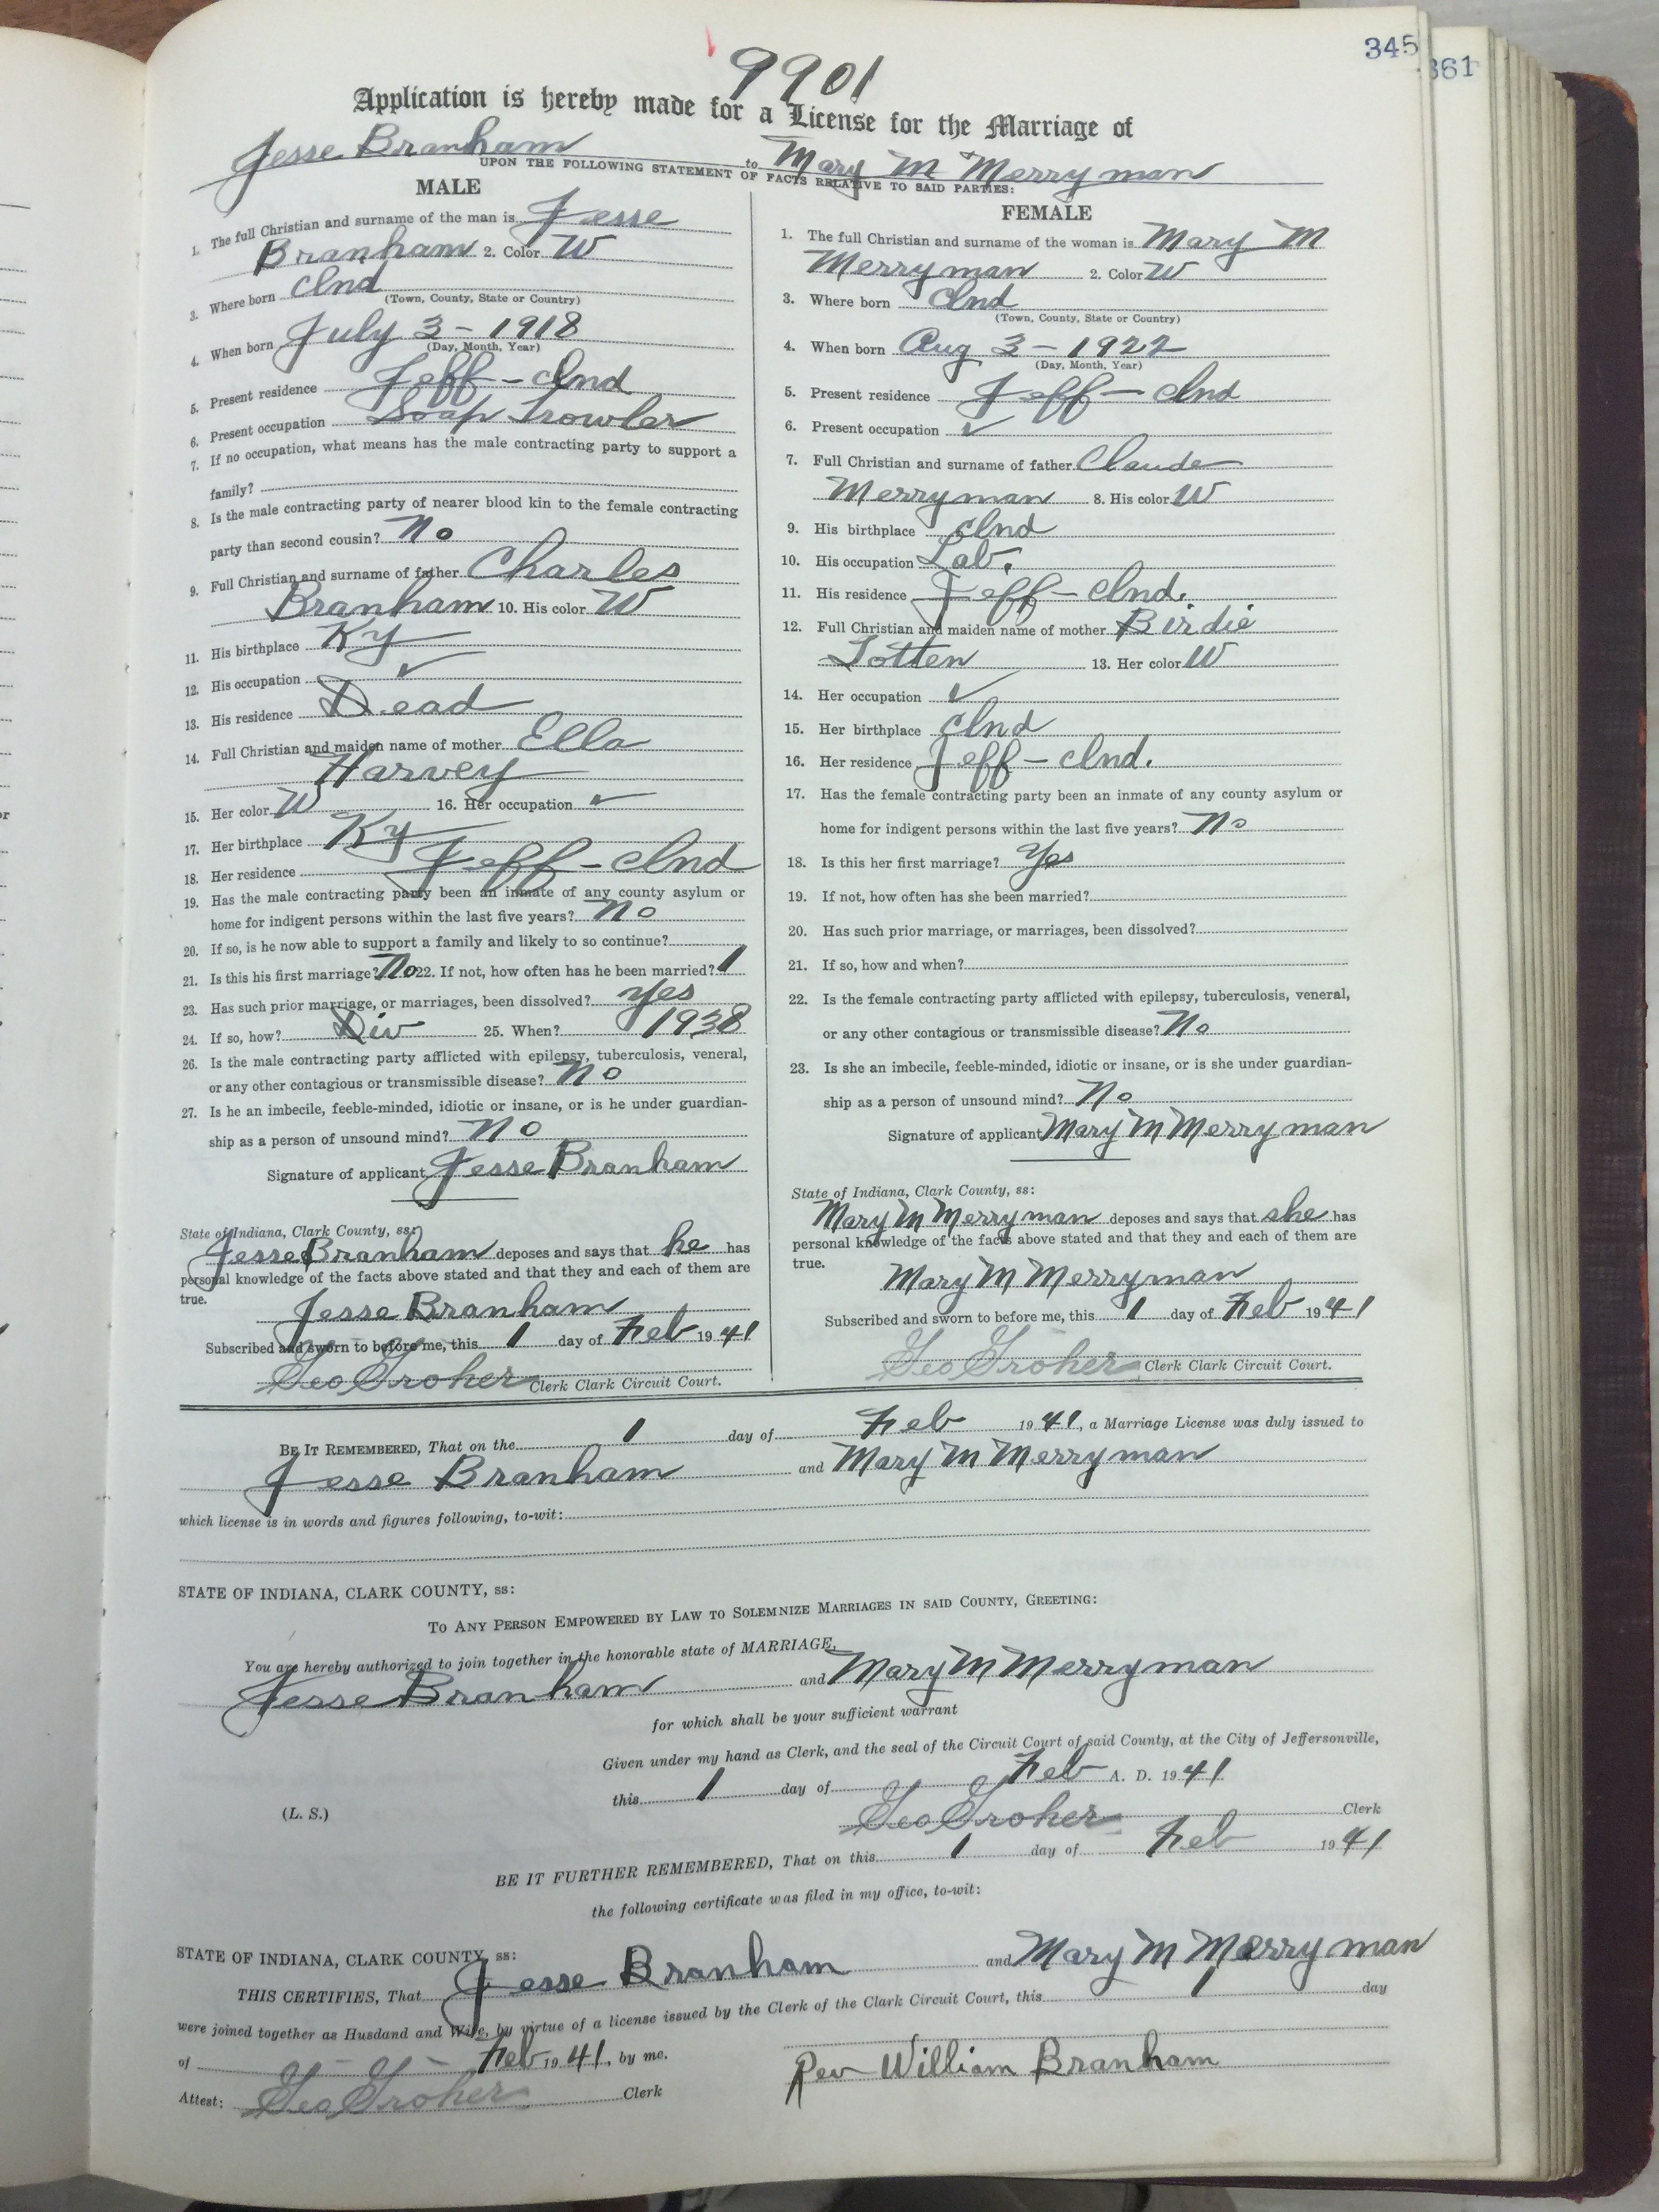 345
361
9901
Application is hereby made for a License for the Marriage of
Jesse Branham to Mary M Merryman
UPON THE FOLLOWING STATEMENT OF FACTS RELATIVE TO SAID PARTIES:
MALE
1. The full Christian and surname of the man is Jesse
Branham 2. Color W
3. Where born Ind
(Town, County, State or Country)
4. When born July 3 - 1918
(Day, Month, Year)
5. Present residence Jeff - Ind
6. Present occupation Soap
7. If no occupation, what means has the male contracting party to support a
family?
8. Is the male contracting party of nearer blood kin to the female contracting
party than second cousin? No
9. Full Christian and surname of father Charles
Branham 10. His color W
11. His birthplace Ky
12. His occupation ✓
13. His residence Dead
14. Full Christian and maiden name of mother Ella
Harvey
15. Her color W 16. Her occupation ✓
17. Her birthplace Ky
18. Her residence Jeff - Ind
19. Has the male contracting party been an inmate of any county asylum or
home for indigent persons within the last five years? No
20. If so, is he now able to support a family and likely to so continue?
21. Is this his first marriage? No 22. If not, how often has he been married? 1
23. Has such prior marriage, or marriages, been dissolved? Yes
24. If so, how? Div 25. When? 1938
26. Is the male contracting party afflicted with epilepsy, tuberculosis, veneral,
or any other contagious or transmissible disease? No
27. Is he an imbecile, feeble-minded, idiotic or insane, or is he under guardian-
ship as a person of unsound mind? No
Signature of applicant Jesse Branham
State of Indiana, Clark County, ss:
Jesse Branham deposes and says that he has
personal knowledge of the facts above stated and that they and each of them are
true.
Jesse Branham
Subscribed and sworn to before me, this 1 day of Feb 1941
Geo Groher Clerk Clark Circuit Court.
FEMALE
1. The full Christian and surname of the woman is Mary M
Merryman 2. Color W
3. Where born Ind
(Town, County, State or Country)
4. When born Aug 3 - 1922
(Day, Month, Year)
5. Present residence Jeff - Ind
6. Present occupation ✓
7. Full Christian and surname of father Claude
Merryman 8. His color W
9. His birthplace Ind
10. His occupation Lab.
11. His residence Jeff - Ind.
12. Full Christian and maiden name of mother Birdie
Totten 13. Her color W
14. Her occupation ✓
15. Her birthplace Ind
16. Her residence Jeff - Ind.
17. Has the female contracting party been an inmate of any county asylum or
home for indigent persons within the last five years? No
18. Is this her first marriage? Yes
19. If not, how often has she been married?
20. Has such prior marriage, or marriages, been dissolved?
21. If so, how and when?
22. Is the female contracting party afflicted with epilepsy, tuberculosis, veneral,
or any other contagious or transmissible disease? No
23. Is she an imbecile, feeble-minded, idiotic or insane, or is she under guardian-
ship as a person of unsound mind? No
Signature of applicant Mary M Merryman
State of Indiana, Clark County, ss:
Mary M Merryman deposes and says that she has
personal knowledge of the facts above stated and that they and each of them are
true.
Mary M Merryman
Subscribed and sworn to before me, this 1 day of Feb 1941
Geo Groher Clerk Clark Circuit Court.
BE IT REMEMBERED, That on the 1 day of Feb 1941, a Marriage License was duly issued to
Jesse Branham and Mary M Merryman
which license is in words and figures following, to-wit:
STATE OF INDIANA, CLARK COUNTY, ss:
TO ANY PERSON EMPOWERED BY LAW TO SOLEMNIZE MARRIAGES IN SAID COUNTY, GREETING:
You are hereby authorized to join together in the honorable state of MARRIAGE,
Jesse Branham and Mary M Merryman
for which shall be your sufficient warrant
Given under my hand as Clerk, and the seal of the Circuit Court of said County, at the City of Jeffersonville,
this 1 day of Feb A. D. 1941
(L. S.) Geo Groher Clerk
BE IT FURTHER REMEMBERED, That on this 1 day of Feb 1941
the following certificate was filed in my office, to-wit:
STATE OF INDIANA, CLARK COUNTY, ss:
THIS CERTIFIES, That Jesse Branham and Mary M Merryman
were joined together as Husdand and Wife, by virtue of a license issued by the Clerk of the Clark Circuit Court, this 1 day
of Feb 1941, by me.
Rev William Branham
Attest: Geo Groher Clerk